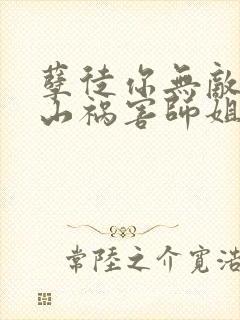 孽徒你無敵
山禍害師姐
常陸之介寬浩